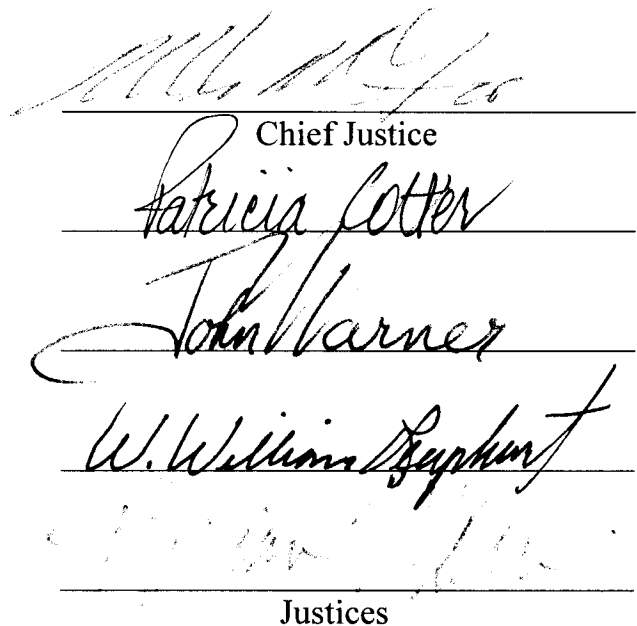 Chief Justice
Patricia Cotter
John Warner
W. William Leaphart
Justices